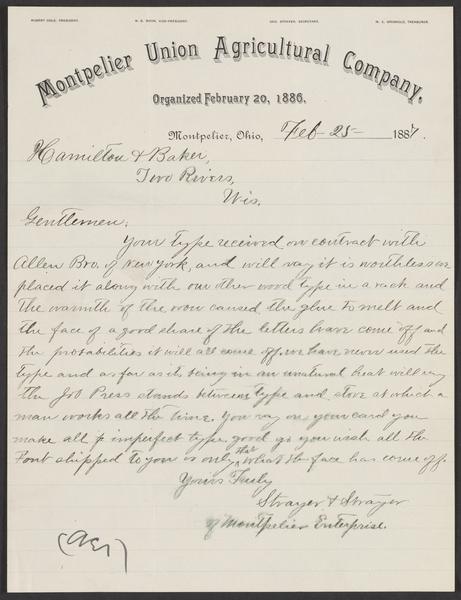 ROBERT OGLE, PRESIDENT. W. S. BOON, VICE-PRESIDENT. GEO. STRAYER, SECRETARY. M. E. GRISWOLD, TREASURER.
Montpelier Union Agricultural Company.
Organized February 20, 1886.
Montpelier, Ohio, Feb - 25 - 1887.
Hamilton & Baker,
Two Rivers,
Wis,
Gentlemen;
Your type received on contract with
Allen Bro. of New York, and will say it is worthless we
placed it along with our other wood type in a rack and
the warmth of the room caused the glue to melt and
the face of a good share of the letters have come off and
the probabilities it will all come off, we have never used the
type and as far as its being in an unatural heat will say
the Job Press stands between type and stove at which a
man works all the time. You say on your card you
make all imperfect type good do you wish all the
Font shipped to you or only that what the face has come off.
Yours Truly
Strayer & Strayer
of Montpelier Enterprise.